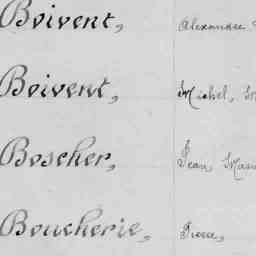 Boivent, Alexandre
Boivent, Michel,
Boscher, Jean,
Boucherie, Pierre,